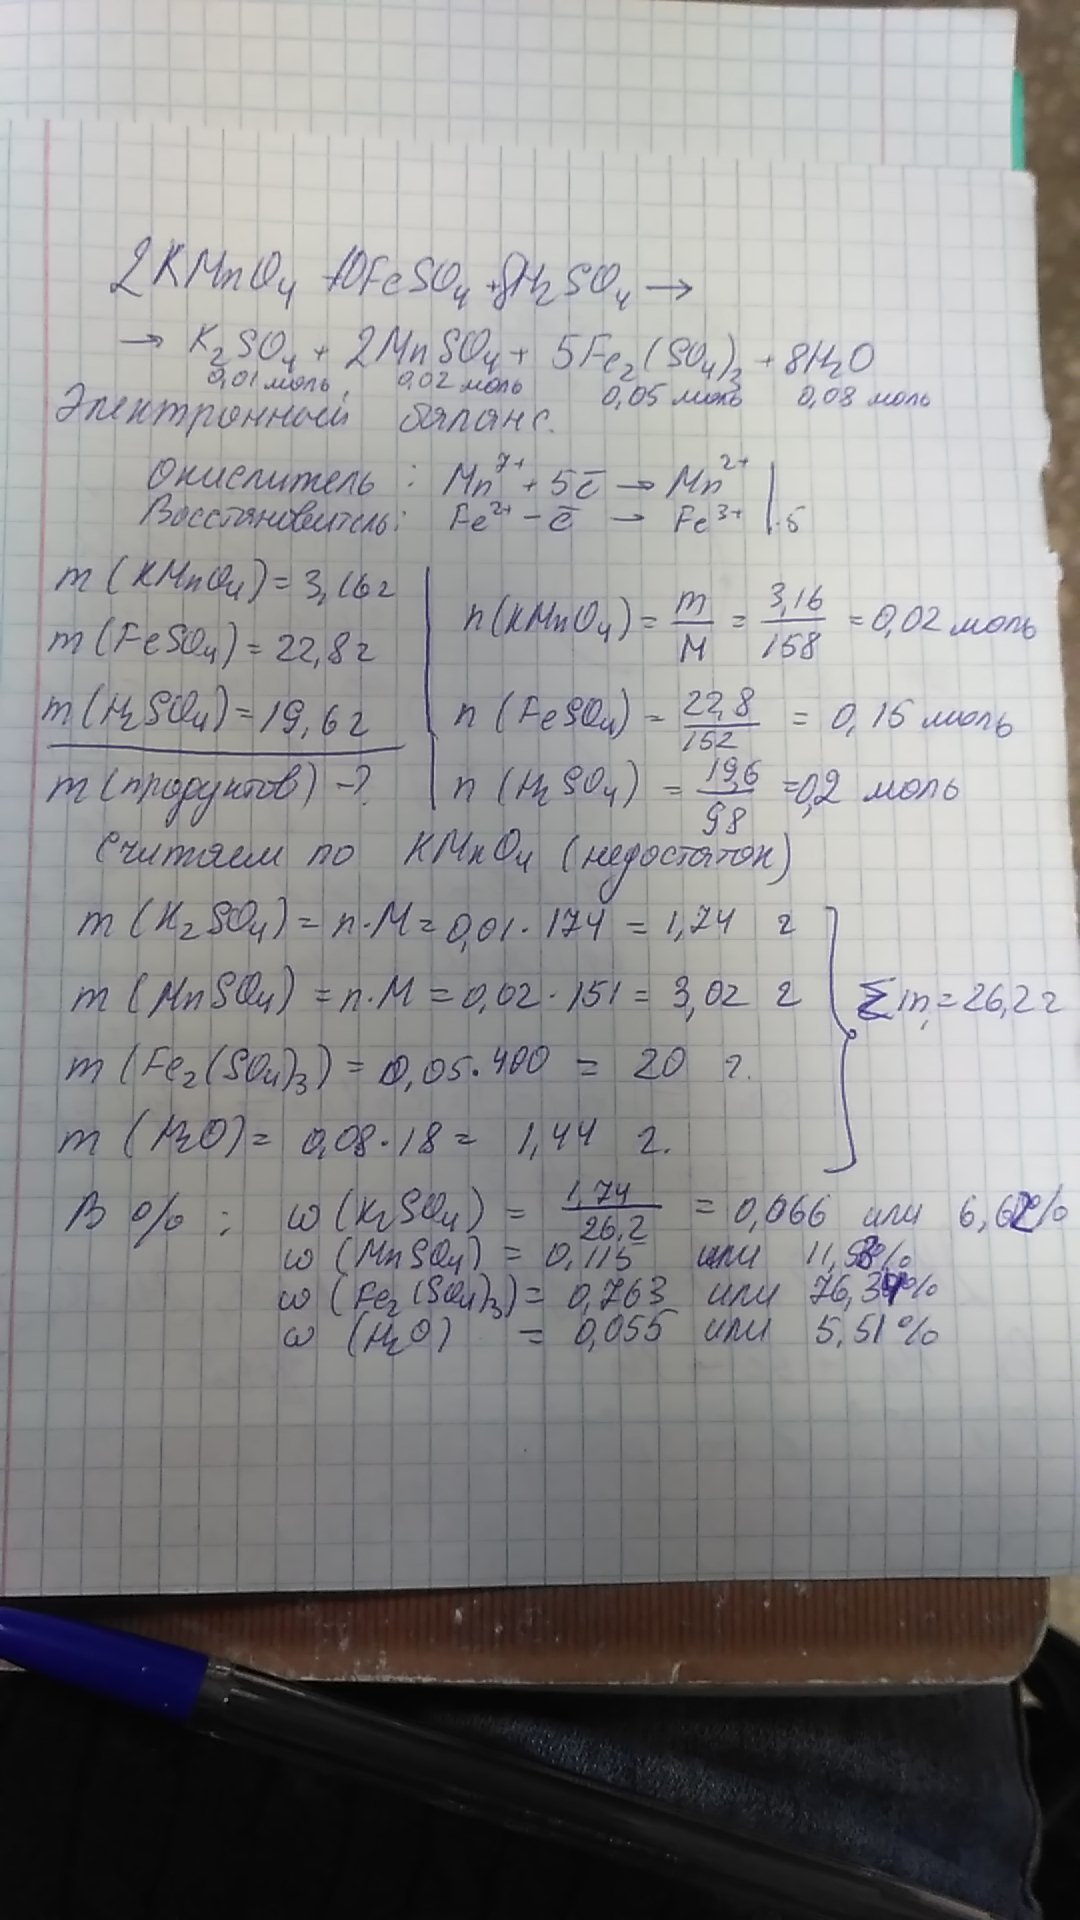 2KMnO₄ + 10FeSO₄ + 8H₂SO₄ →
→ K₂SO₄ + 2MnSO₄ + 5Fe₂(SO₄)₃ + 8H₂O
0,01 моль 0,02 моль 0,05 моль 0,08 моль
Электронный баланс.
Окислитель: Mn⁷⁺ + 5ē → Mn²⁺ |
Восстановитель: Fe²⁺ - ē → Fe³⁺ | ·5
m(KMnO₄) = 3,16г
m(FeSO₄) = 22,8г
m(H₂SO₄) = 19,6г
m(продуктов) -?
n(KMnO₄) = m/M = 3,16/158 = 0,02 моль
n(FeSO₄) = 22,8/152 = 0,15 моль
n(H₂SO₄) = 19,6/98 = 0,2 моль
Считаем по KMnO₄ (недостаток)
m(K₂SO₄) = n·M = 0,01·174 = 1,74 г
m(MnSO₄) = n·M = 0,02·151 = 3,02 г
Σm = 26,2г
m(Fe₂(SO₄)₃) = 0,05·400 = 20 г.
m(H₂O) = 0,08·18 = 1,44 г.
В %: ω(K₂SO₄) = 1,74/26,2 = 0,066 или 6,62%
ω(MnSO₄) = 0,115 или 11,53%
ω(Fe₂(SO₄)₃) = 0,763 или 76,34%
ω(H₂O) = 0,055 или 5,51%